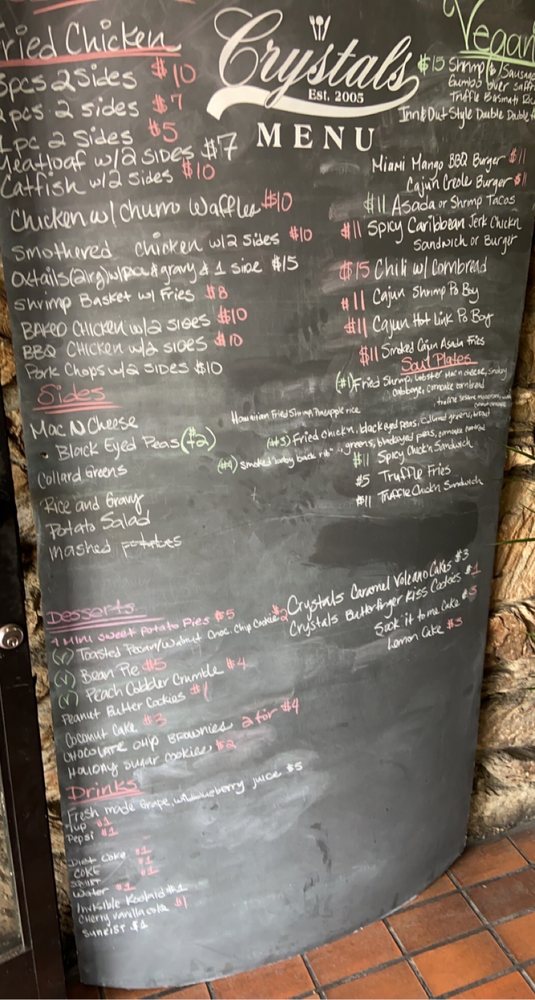 Fried Chicken
3pcs 2 Sides $10
2pcs 2 sides $7
1pc 2 Sides $5
Meatloaf w/2 sides $7
Catfish w/2 sides $10
Chicken w/ Churro Waffles $10
Smothered Chicken w/2 sides $10
Oxtails(2lrg) w/ gravy & 1 side $15
Shrimp Basket w/ Fries $8
BAKED CHICKEN w/2 sides $10
BBQ CHICKEN w/2 sides $10
Pork Chops w/2 sides $10
Sides
Mac N Cheese
Black Eyed Peas
Collard Greens
Rice and Gravy
Potato Salad
Mashed Potatoes
Crystals
Est. 2005
MENU
Vegan
$15 Shrimp &/Sausage
Gumbo over Saffr
Truffle Basmati Ric
Inn & Out Style Double Double
Miami Mango BBQ Burger $11
Cajun Creole Burger $11
$11 Asada or Shrimp Tacos
$11 Spicy Caribbean Jerk Chickn
Sandwich or Burger
$15 Chili w/ Cornbread
$11 Cajun Shrimp Po Boy
$11 Cajun Hot Link Po Boy
$11 Smoked Cajun Asada Fries
Soul Plates
(#1) Fried Shrimp, lobster Mac n cheese, smoky
cabbage, cornbread
(#2) Hawaiian Fried Shrimp Pineapple rice
(#3) Fried Chickn, black eyed peas, collard greens, bread
(#4) Smoked "baby back rib" greens, blackeyed peas,
$11 Spicy Chickn Sandwich
$5 Truffle Fries
$11 Truffle Chickn Sandwich
Desserts
1 Mini Sweet Potato Pies $5
(v) Toasted Pecan/Walnut Choc. Chip Cookie $2
(v) Bean Pie $5
(v) Peach Cobbler Crumble $4
Peanut Butter Cookies $1
Coconut Cake $3
CHOCOLATE CHIP BROWNIES 2 for $4
Sugar Cookies $2
Crystals Caramel Volcano Cakes $3
Crystals Butterfinger Kiss Cookies $1
Sock it to me Cake $3
Lemon Cake $3
Drinks
Fresh made Grape, juice $5
7up $1
Pepsi $1
Diet Coke $1
COKE $1
Sprite $1
Water $1
Invisible Koolaid $1
Cherry Vanilla Coke $1
Sunkist $1